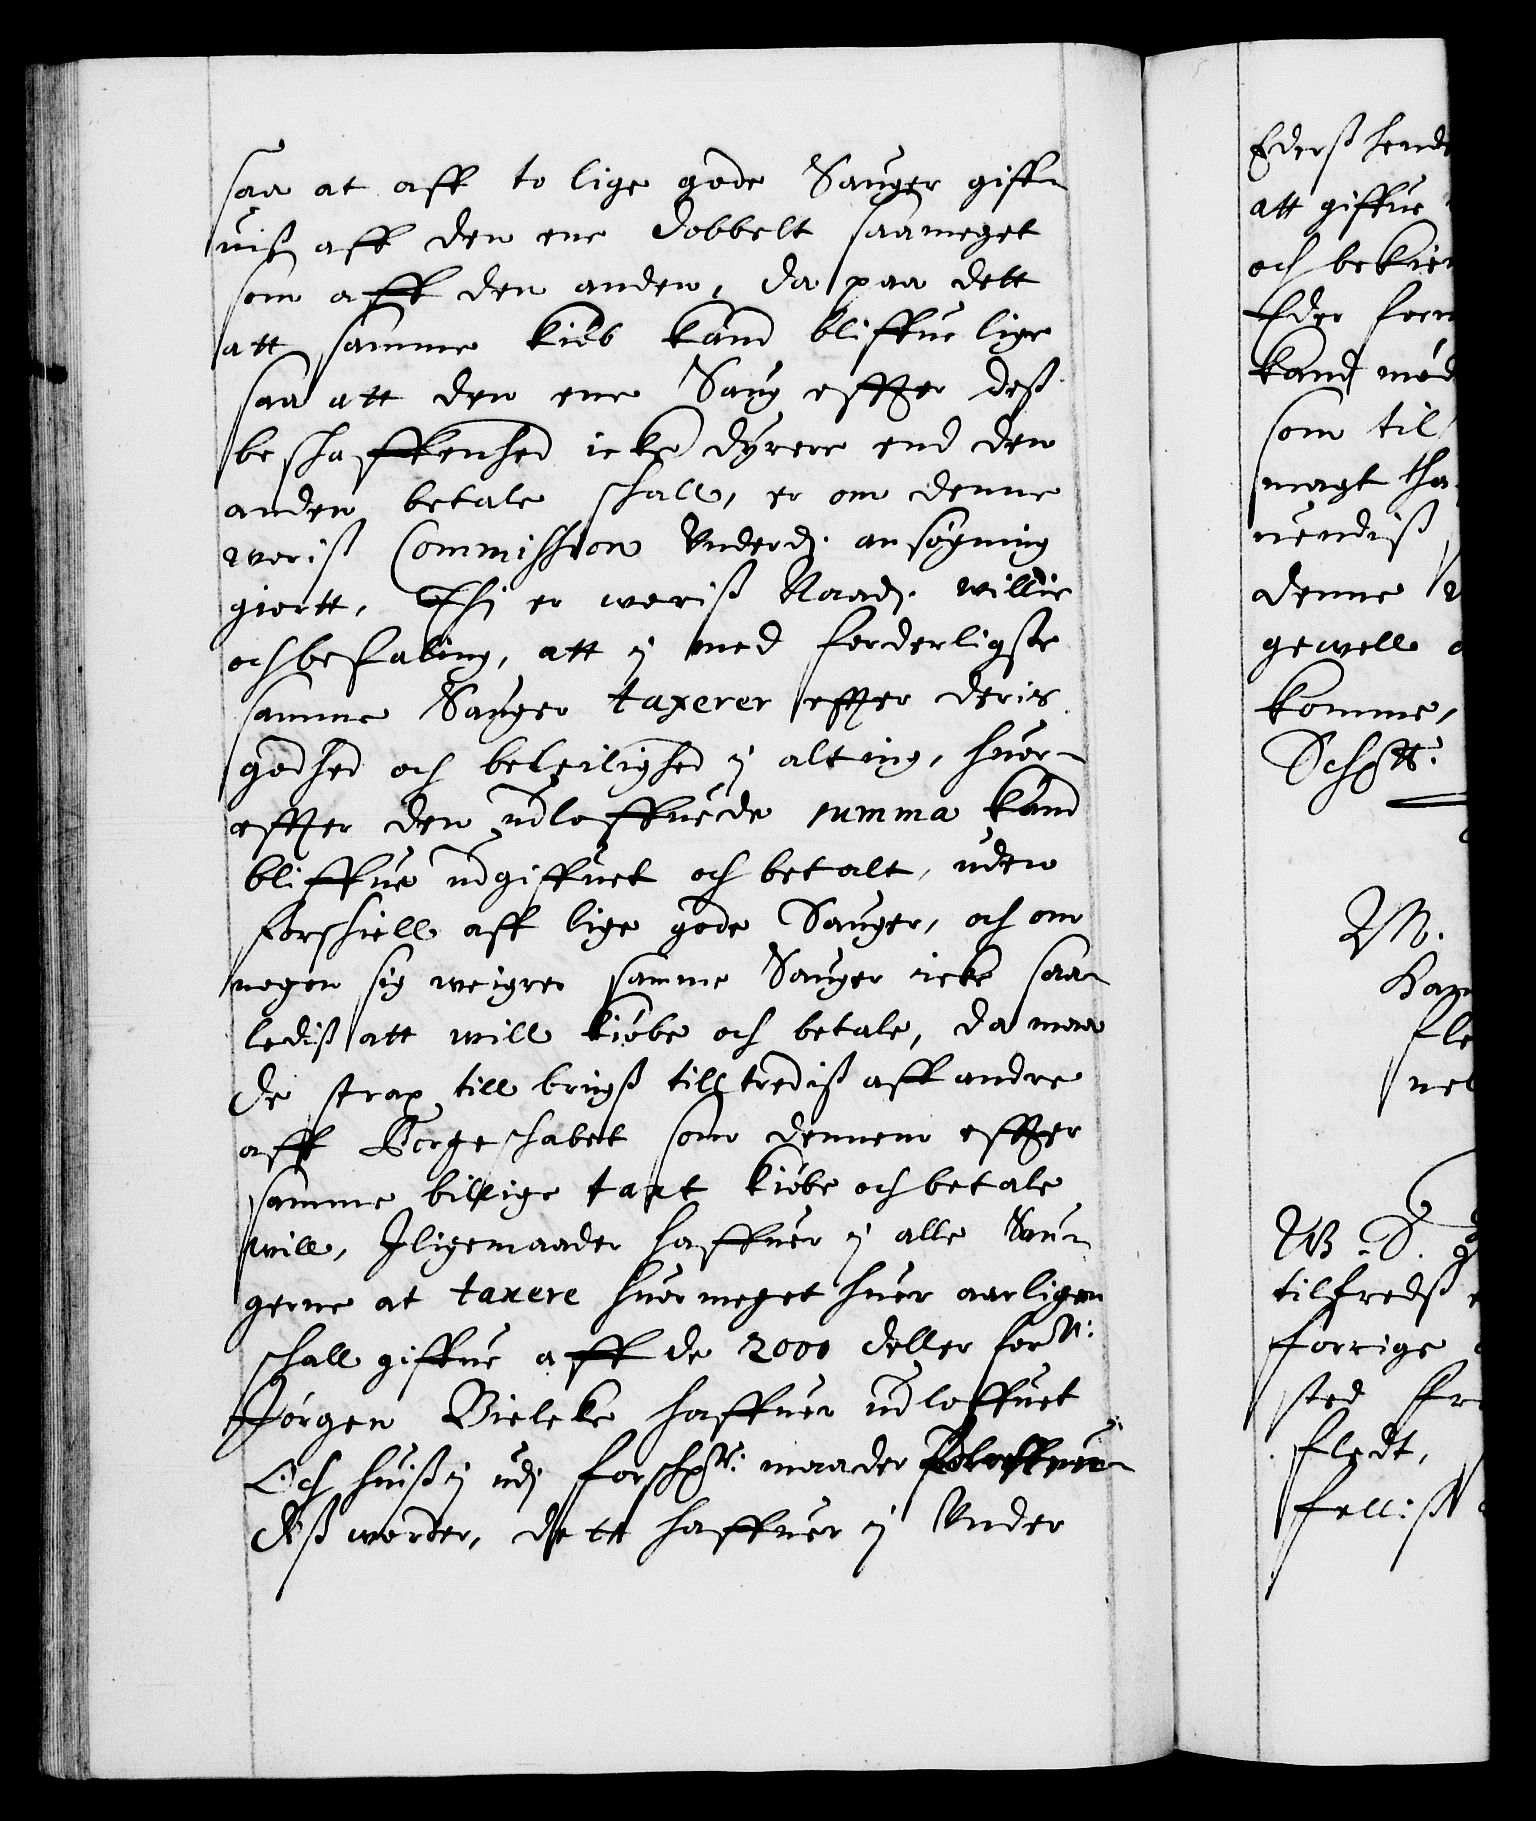 saa at aff to lige gode Sauger giff-
uiß aff den ene dobbelt saameget
som aff den anden, da paa dett
att samme kiøb kand bliffue lige
saa att den ene Saug effter deß
beschaffenhed icke dyrere end den
anden betale schall, er om denne
woriß Commission Underd: ansøgning
giortt, Thi er woriß Naad: willie
och befaling, att i med forderligste
samme Sauger taxerer effter deris
godhed och beleilighed i alting, huor-
effter den udloffuede summa kand
bliffue udgiffuet och betalt, uden
forschiell aff lige gode Sauger, och om
nogen sig weigrer samme Sauger icke saa-
lediß att will kiøbe och betale, da maa
de strax till brugß tilltrediß aff andre
aff Borgeschabet som dennem effter
samme billige taxt kiøbe och betale
will, Iligemaader haffuer i alle Sau-
gerne at taxere huor meget huer aarligen
schall giffue aff de 2000 daller for:ne
Jørgen Bielcke haffuer udloffuet
Och huiß i udj forsch:ne maader
diß worder, dett haffuer i Under
Ederß hende
att giffue
och bekier
Eder for
kand mød
som til
magt tha
uendiß
denne
gewell
komme,
Scht:
M.
Han
fle
nel
W. S. g
tilfredß
forrige
sted fr
fledt,
felliß